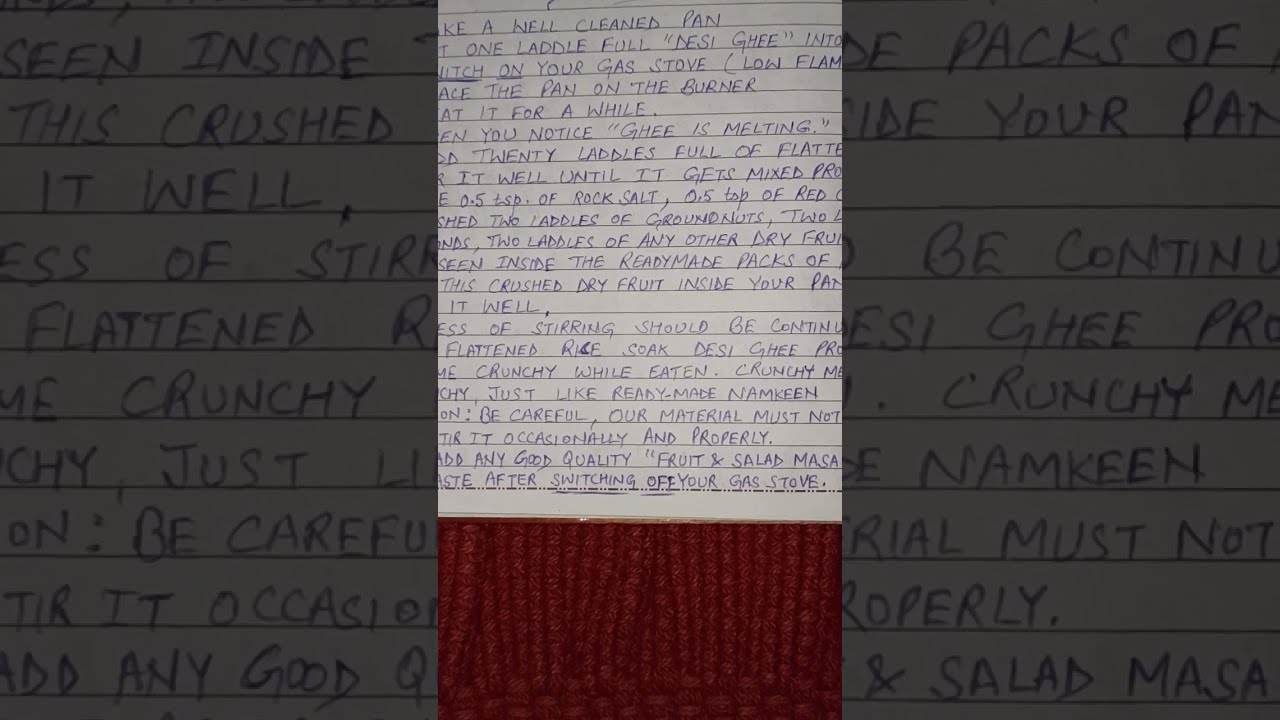 KE A WELL CLEANED PAN
T ONE LADDLE FULL "DESI GHEE" INTO
ITCH ON YOUR GAS STOVE (LOW FLAM
ACE THE PAN ON THE BURNER
AT IT FOR A WHILE.
EN YOU NOTICE "GHEE IS MELTING."
DD TWENTY LADDLES FULL OF FLATTE
R IT WELL UNTIL IT GETS MIXED PRO
E 0.5 tsp. OF ROCK SALT, 0.5 tsp OF RED C
SHED TWO LADDLES OF GROUNDNUTS, TWO L
ONDS, TWO LADDLES OF ANY OTHER DRY FRUI
SEEN INSIDE THE READYMADE PACKS OF
THIS CRUSHED DRY FRUIT INSIDE YOUR PAN
IT WELL,
ESS OF STIRRING SHOULD BE CONTINU
FLATTENED RICE SOAK DESI GHEE PRO
ME CRUNCHY WHILE EATEN. CRUNCHY ME
CHY, JUST LIKE READY-MADE NAMKEEN
ON: BE CAREFUL, OUR MATERIAL MUST NOT
TIR IT OCCASIONALLY AND PROPERLY.
ADD ANY GOOD QUALITY "FRUIT & SALAD MASA
ASTE AFTER SWITCHING OFF YOUR GAS STOVE.